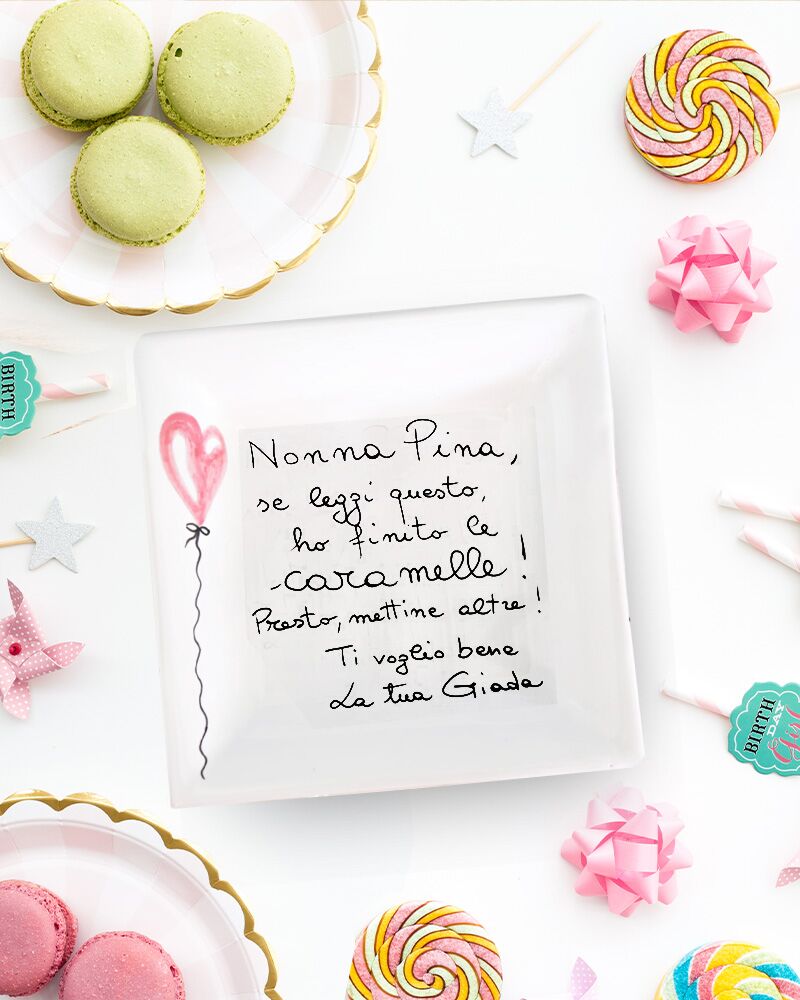 BIRTH
Nonna Pina,
se leggi questo,
ho finito le
caramelle!
Presto, mettine altre!
Ti voglio bene
La tua Giada
BIRTH
DAY
Girl